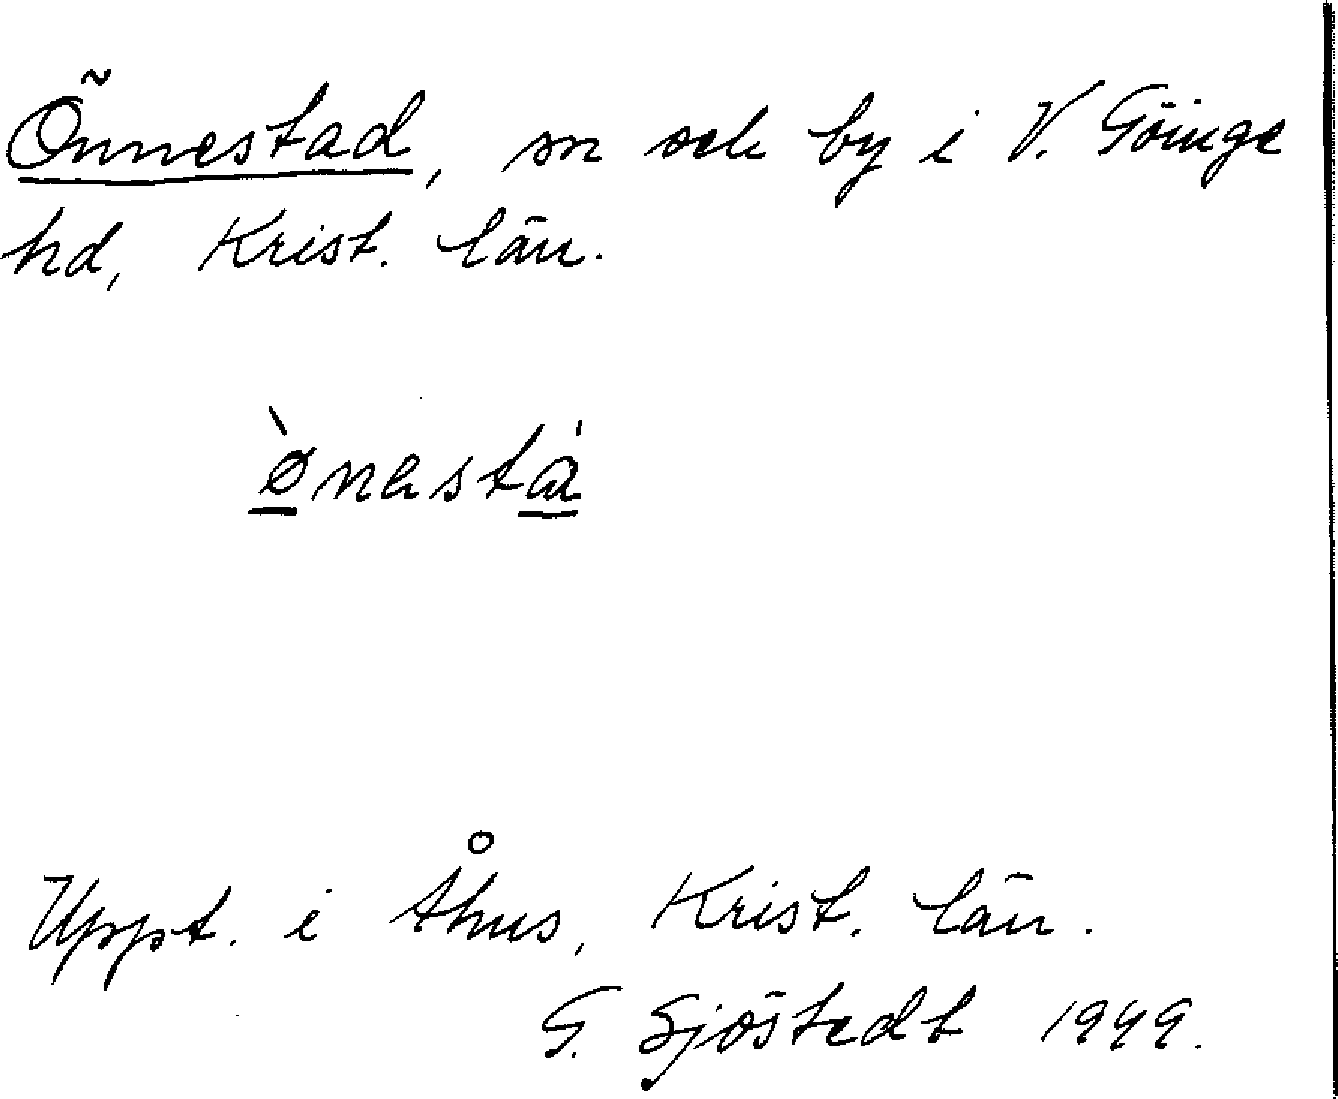 Önnestad, sn och by i V. Göinge
hd, Krist. län.
ø̀nestá
Uppt. i Åhus, Krist. län.
G. Sjöstedt 1949.